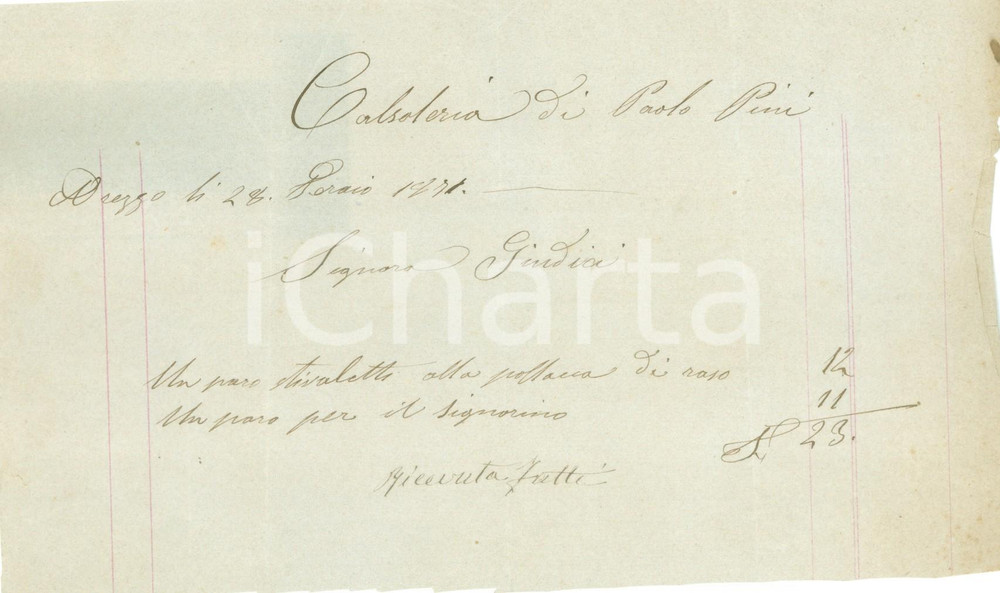 Calsoleria di Paolo Pini
Arezzo li 28. 1871.
Signora Giudici
iCharta
Un paro stivaletti alla pollacca di raso 12
Un paro per il Signorino 11
L 23.
Ricevuta